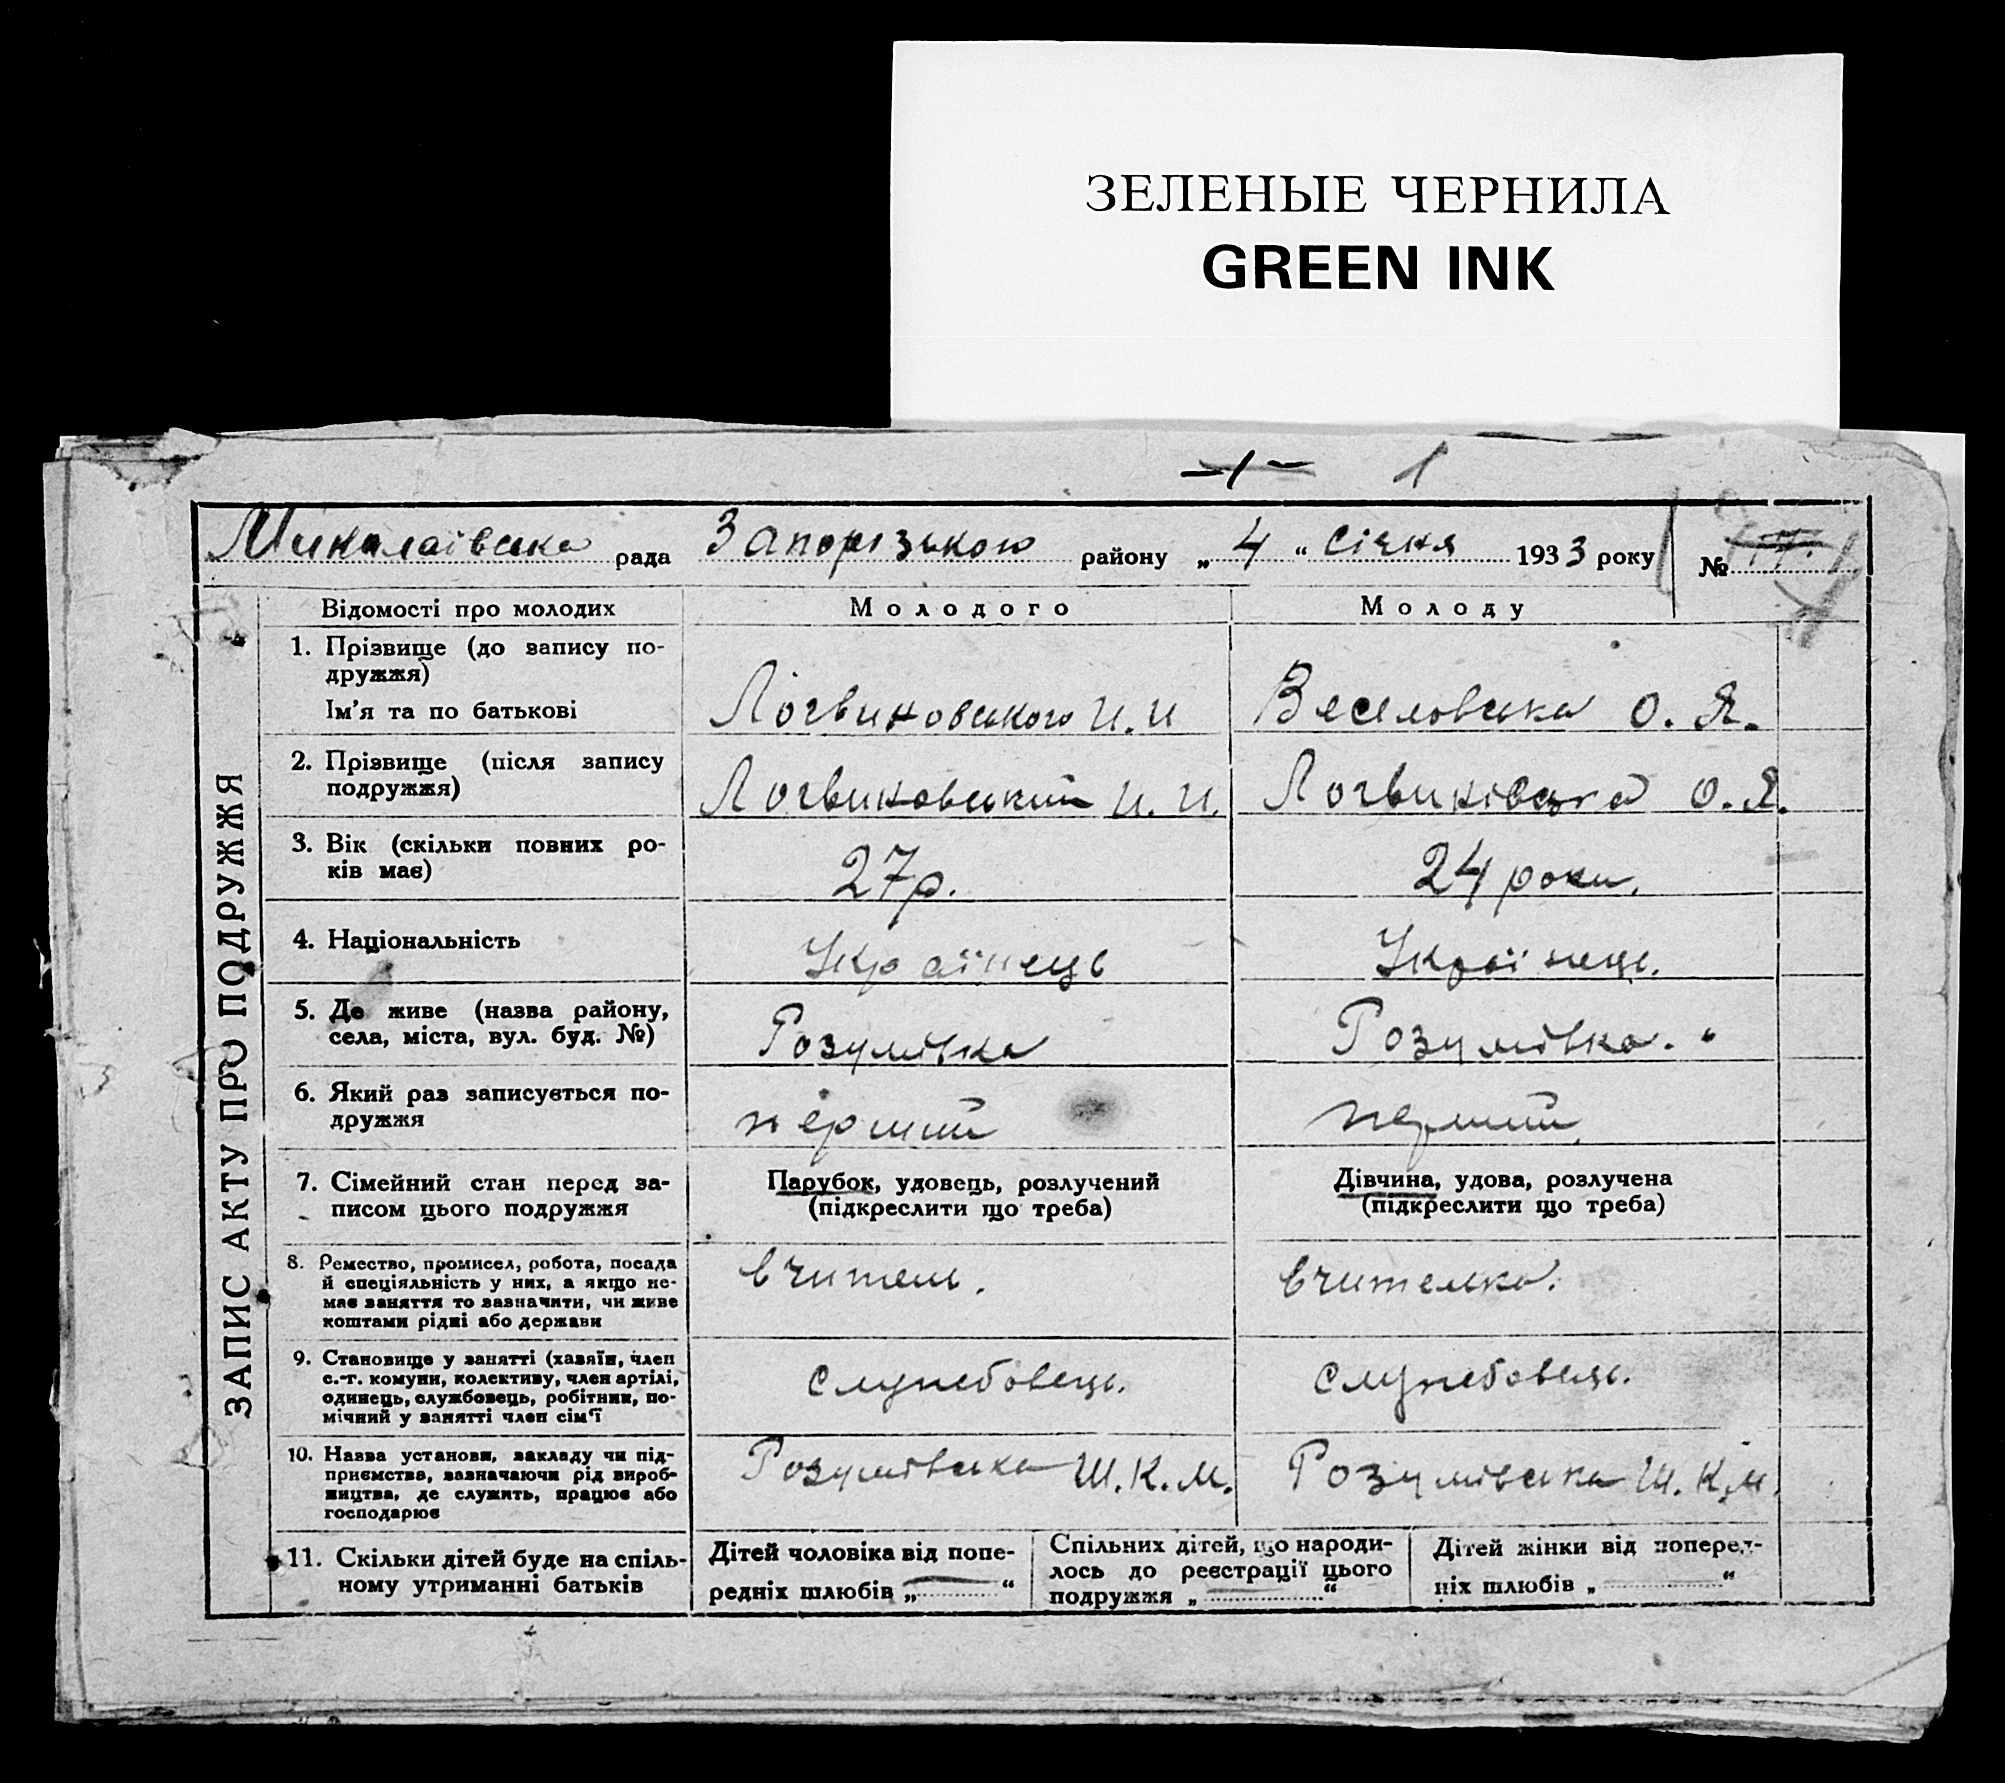 ЗЕЛЕНЫЕ ЧЕРНИЛА
GREEN INK
-1- 1
Миколаївська рада Запорізького району „ 4 “ січня 1933 року №
ЗАПИС АКТУ ПРО ПОДРУЖЖЯ
Відомості про молодих Молодого Молоду
1. Прізвище (до запису по-
дружжя)
Ім'я та по батькові
Логвиновського И. И Веселовська О. Я.
2. Прізвище (після запису
подружжя)
Логвиновський И. И. Логвинівська О. Я.
3. Вік (скільки повних ро-
ків має)
27 р. 24 роки.
4. Національність
Українець Українець.
5. Де живе (назва району,
села, міста, вул. буд. №)
Розумівка Розумівка.
6. Який раз записується по-
дружжя
перший перший
7. Сімейний стан перед за-
писом цього подружжя
Парубок, удовець, розлучений
(підкреслити що треба)
Дівчина, удова, розлучена
(підкреслити що треба)
8. Ремество, промисел, робота, посада
й спеціяльність у них, а якщо не-
має заняття то зазначити, чи живе
коштами рідні або держави
вчитель. вчителька.
9. Становище у занятті (хазяїн, член
с.-г. комуни, колективу, член артілі,
одинець, службовець, робітник, по-
мічний у занятті член сім'ї
служебовець. служебовець.
10. Назва установи, закладу чи під-
приємства, зазначаючи рід вироб-
ництва, де служить, працює або
господарює
Розумівська Ш.К.М. Розумівська Ш.К.М.
11. Скільки дітей буде на спіль-
ному утриманні батьків
Дітей чоловіка від попе-
редніх шлюбів „ “
Спільних дітей, що народи-
лось до реєстрації цього
подружжя „ “
Дітей жінки від поперед-
ніх шлюбів „ “